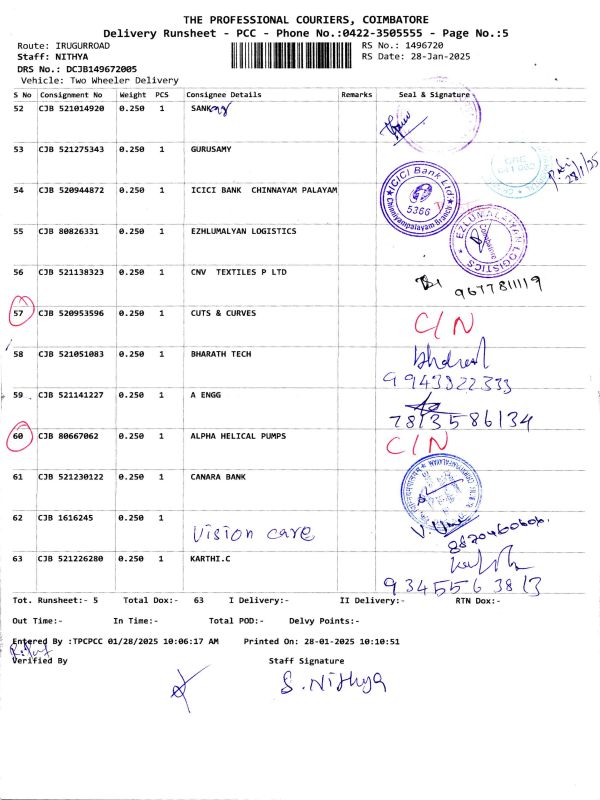 THE PROFESSIONAL COURIERS, COIMBATORE
Delivery Runsheet - PCC - Phone No.:0422-3505555 - Page No.:5
Route: IRUGURROAD RS No.: 1496720
Staff: NITHYA RS Date: 28-Jan-2025
DRS No.: DCJB149672005
Vehicle: Two Wheeler Delivery
S No Consignment No Weight PCS Consignee Details Remarks Seal & Signature
52 CJB 521014920 0.250 1
53 CJB 521275343 0.250 1 GURUSAMY
28/1/25
54 CJB 520944872 0.250 1 ICICI BANK CHINNAYAM PALAYAM
ICICI Bank Ltd
5366
Chinniyampalayam Branch
55 CJB 80826331 0.250 1 EZHLUMALYAN LOGISTICS
EZLUMALAIYAN LOGISTICS
Coimbatore
56 CJB 521138323 0.250 1 CNV TEXTILES P LTD
9677811119
57 CJB 520953596 0.250 1 CUTS & CURVES C/N
58 CJB 521051083 0.250 1 BHARATH TECH
9943922333
59 CJB 521141227 0.250 1 A ENGG
7813586134
60 CJB 80667062 0.250 1 ALPHA HELICAL PUMPS C/N
61 CJB 521230122 0.250 1 CANARA BANK
62 CJB 1616245 0.250 1 Vision care
63 CJB 521226280 0.250 1 KARTHI.C
Tot. Runsheet:- 5 Total Dox:- 63 I Delivery:- II Delivery:- RTN Dox:-
Out Time:- In Time:- Total POD:- Delvy Points:-
Entered By :TPCPCC 01/28/2025 10:06:17 AM Printed On: 28-01-2025 10:10:51
Verified By Staff Signature
S. Nithya